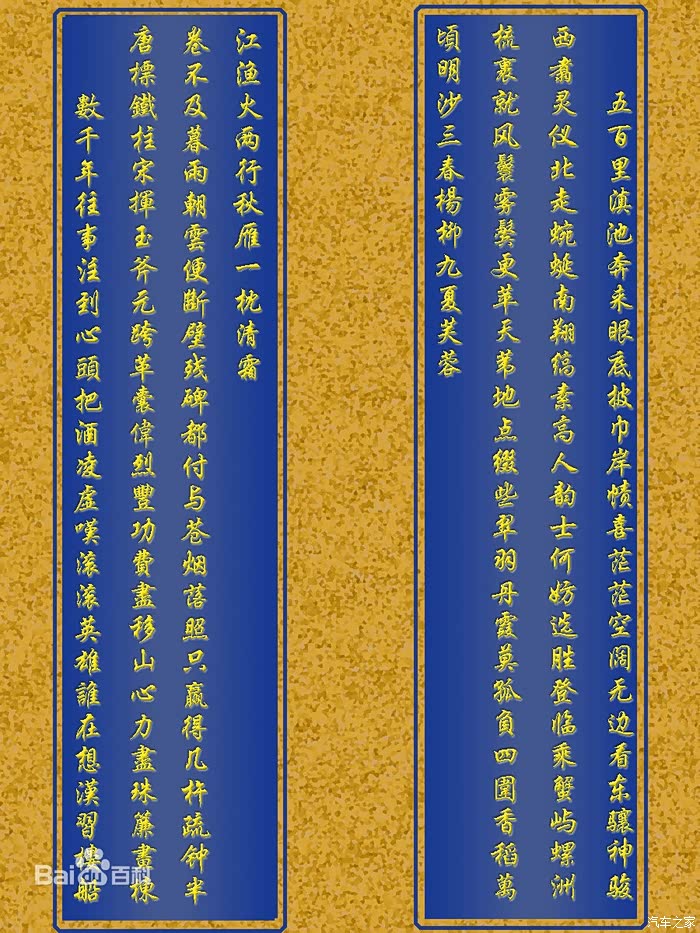 五百里滇池奔来眼底披巾岸帻喜茫茫空阔无边看东骧神骏
西翥灵仪北走蜿蜒南翔缟素高人韵士何妨选胜登临乘蟹屿螺洲
梳裹就风鬟雾鬓更苹天苇地点缀些翠羽丹霞莫孤負四圍香稻萬
頃明沙三春楊柳九夏芙蓉
數千年往事注到心頭把酒凌虚嘆滚滚英雄誰在想漢習樓船
唐標鐵柱宋揮玉斧元跨革囊偉烈豐功費盡移山心力盡珠簾畫棟
卷不及暮雨朝雲便斷壁残碑都付与苍烟落照只赢得几杵疏钟半
江渔火两行秋雁一枕清霜
Baidu百科
汽车之家